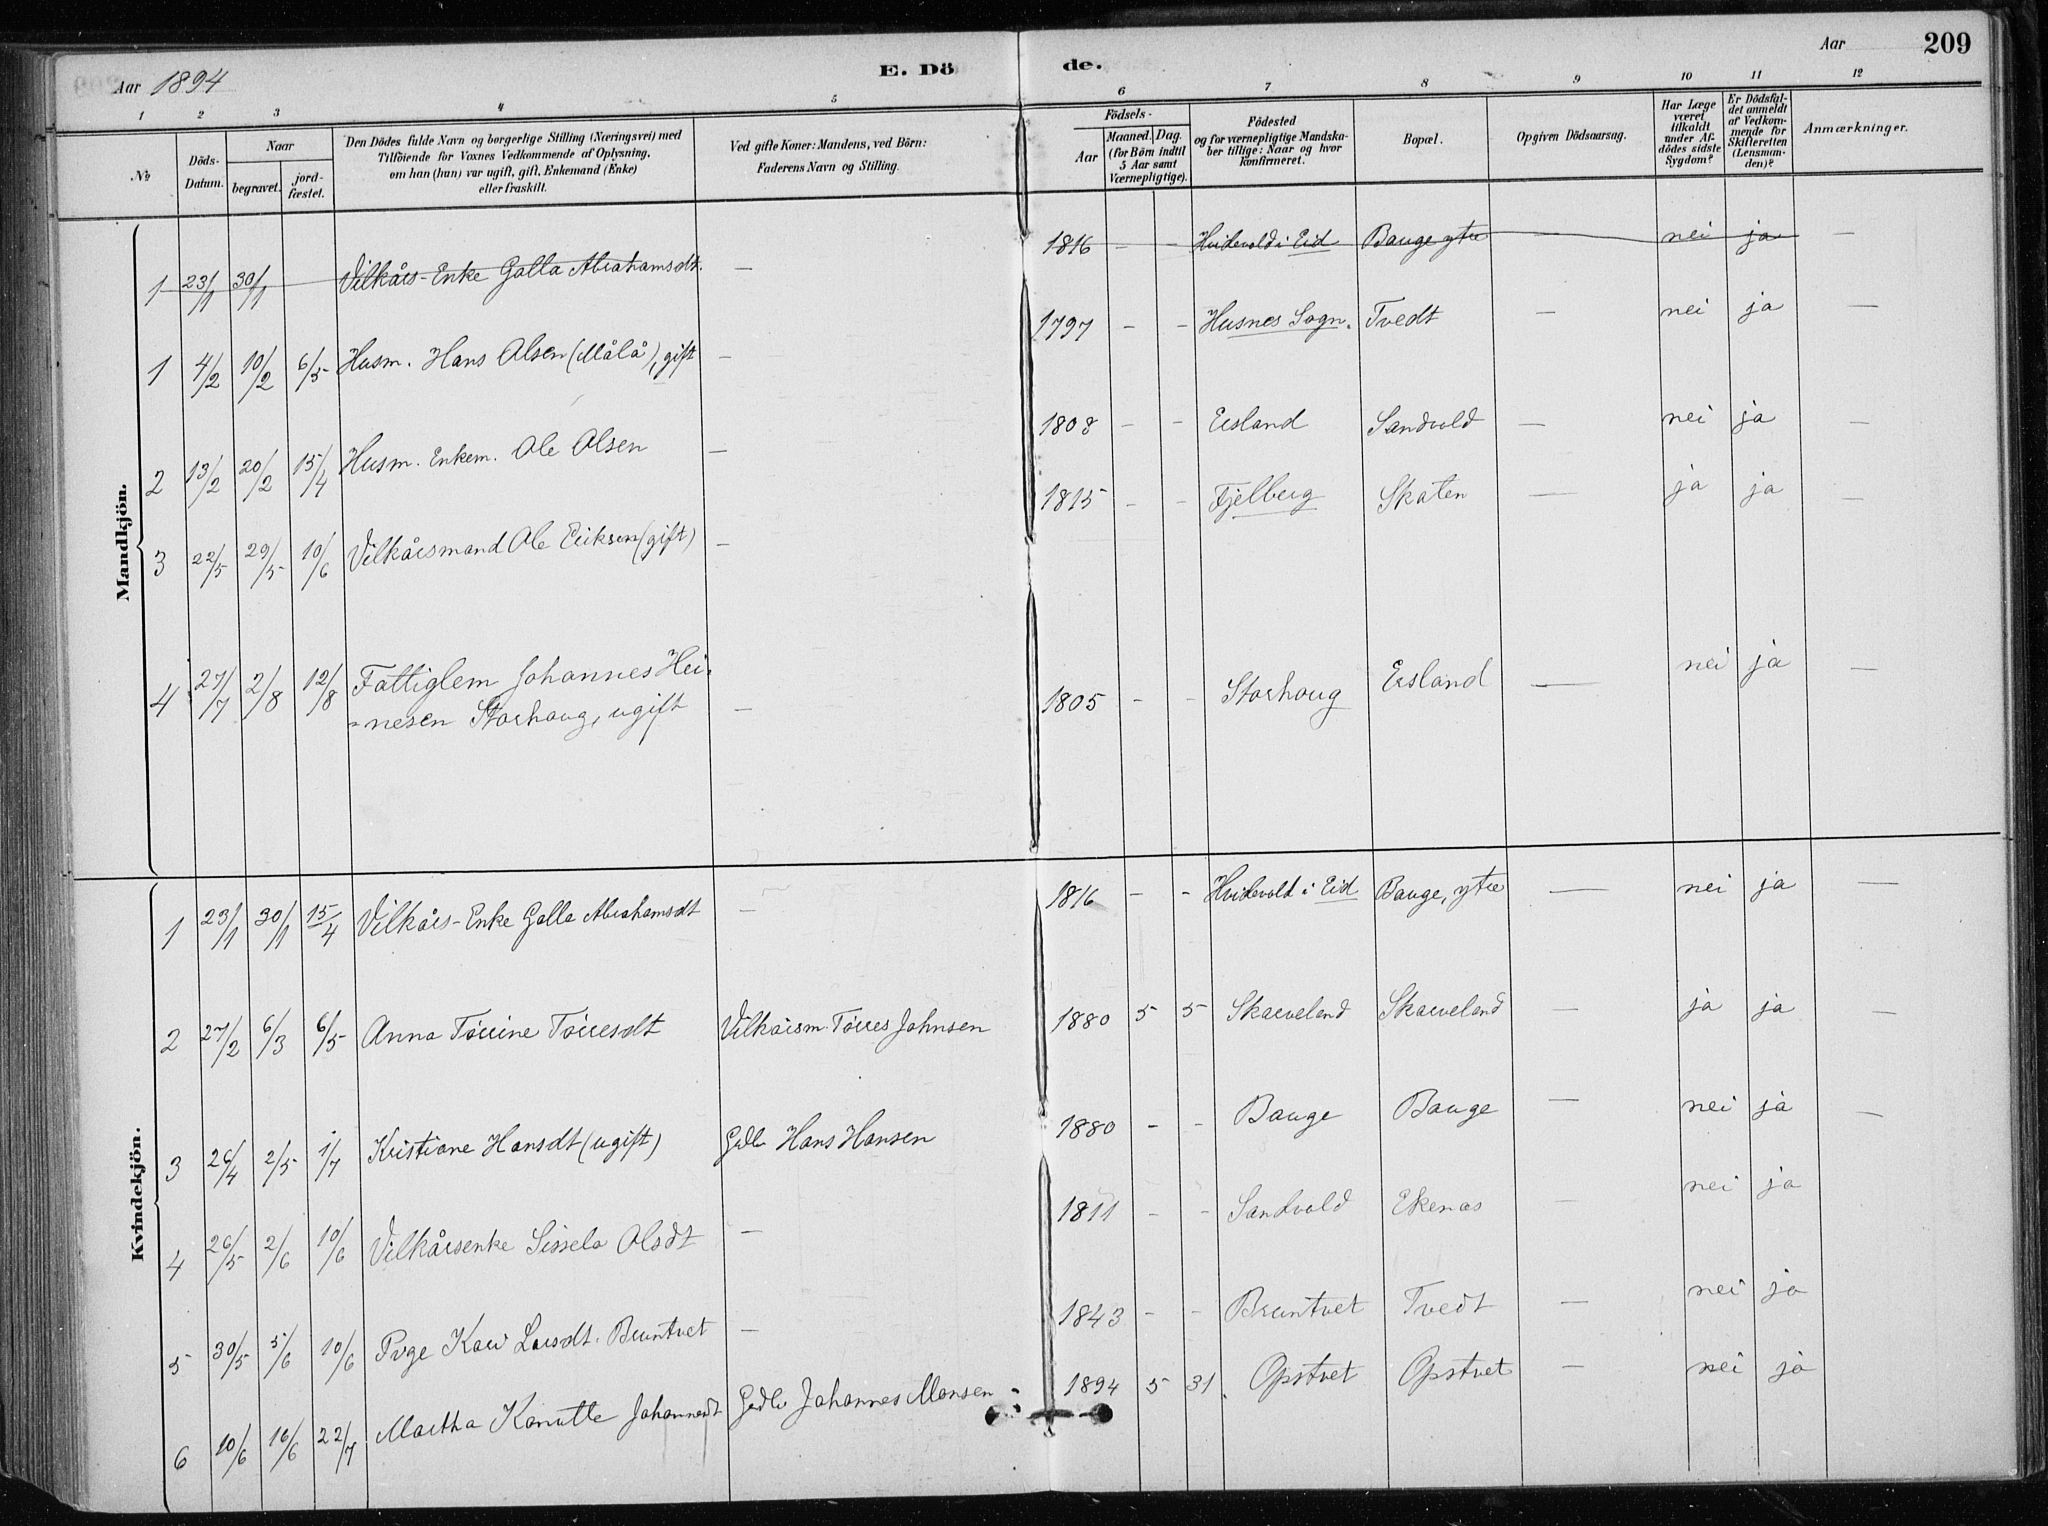 Aar 1894
E. Dö
de.
Aar
209
1 2 3 4 5 6 7 8 9 10 11 12
No
Döds-
Datum.
Naar
begravet.
jord-
fæstet.
Den Dödes fulde Navn og borgerlige Stilling (Næringsvei) med
Tilföiende for Voxnes Vedkommende af Oplysning,
om han (hun) var ugift, gift, Enkemand (Enke)
eller fraskilt.
Ved gifte Koner: Mandens, ved Börn:
Faderens Navn og Stilling.
Födsels-
Aar
Maaned. Dag.
(for Börn indtil
5 Aar samt
Værnepligtige).
Födested
og for værnepligtige Mandska-
ber tillige: Naar og hvor
konfirmeret.
Bopæl.
Opgiven Dödsaarsag.
Har Læge
været
tilkaldt
under Af-
dödes sidste
Sygdom?
Er Dödsfal-
det anmeldt
af Vedkom-
mende for
Skifteretten
(Lensman-
den)?
Anmærkninger.
Mandkjön.
1 23/1 30/1 Vilkårs-Enke Galla Abrahamsdt. — 1816 — — Hvidevold i Eid Bauge ytre — nei ja —
1 4/2 10/2 6/5 Husm. Hans Olsen (Målå), gift — 1797 - - Husnes Sogn. Tvedt — nei ja —
2 13/2 20/2 15/4 Husm. Enkem. Ole Olsen — 1808 - - Ersland Sandvold — nei ja —
3 22/5 29/5 10/6 Vilkårsmand Ole Eriksen (gift) — 1815 - - Fjelberg Skaten — ja ja —
4 27/7 2/8 12/8 Fattiglem Johannes Hei-
-nesen Storhoug, ugift — 1805 - - Storhoug Ersland — nei ja —
Kvindekjön.
1 23/1 30/1 15/4 Vilkårs-Enke Galla Abrahamsdt — 1816 - - Hvidevold i Eid Bauge, ytre — nei ja —
2 27/2 6/3 6/5 Anna Tørrine Tørresdt Vilkårsm. Tørres Johnsen 1880 5 5 Skarveland Skarveland — ja ja —
3 26/4 2/5 1/7 Kristiane Hansdt (ugift) Gdbr Hans Hansen 1880 - - Bauge Bauge — nei ja —
4 26/5 2/6 10/6 Vilkårsenke Sissela Olsdt — 1811 - - Sandvold Ekenæs — nei ja
5 30/5 5/6 10/6 Pige Kari Larsdt. Bruntvet — 1843 - - Bruntvet Tvedt — nei ja
6 10/6 16/6 22/7 Martha Kanutte Johannesdt Gdbr Johannes Monsen 1894 5 31. Opstvet Opstvet — nei ja